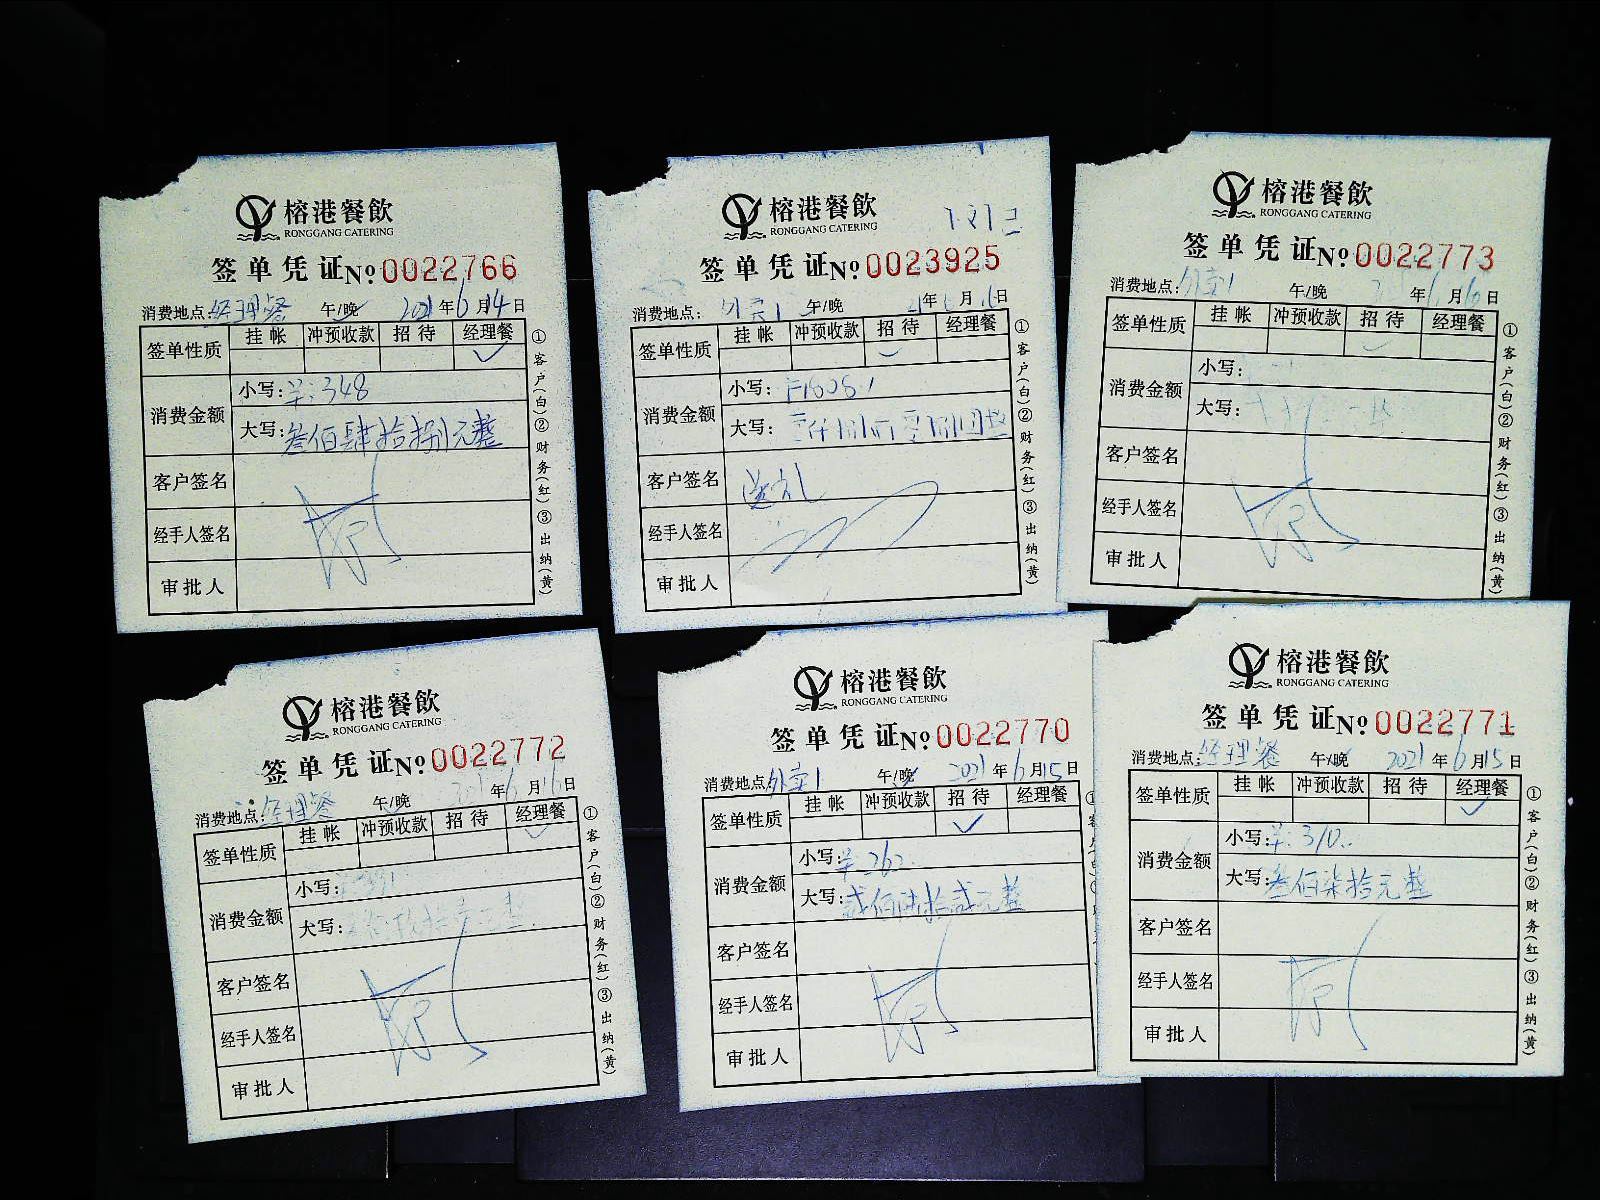 榕港餐飲
RONGGANG CATERING
签单凭证 No 0022766
消费地点: 经理餐 午/晚 2021年6月14日
签单性质 挂帐 冲预收款 招待 经理餐
✓
消费金额 小写: ¥:348
大写: 叁佰肆拾捌元整
客户签名
经手人签名
审批人
①客户(白)②财务(红)③出纳(黄)
榕港餐飲
RONGGANG CATERING
签单凭证 No 0023925
消费地点: 外卖1 午/晚 21年6月16日
签单性质 挂帐 冲预收款 招待 经理餐
✓
消费金额 小写:
大写:
客户签名 送礼
经手人签名
审批人
①客户(白)②财务(红)③出纳(黄)
榕港餐飲
RONGGANG CATERING
签单凭证 No 0022773
消费地点: 外卖1 午/晚 年6月16日
签单性质 挂帐 冲预收款 招待 经理餐
✓
消费金额 小写:
大写:
客户签名
经手人签名
审批人
①客户(白)②财务(红)③出纳(黄)
榕港餐飲
RONGGANG CATERING
签单凭证 No 0022772
消费地点: 经理餐 午/晚 2021年6月16日
签单性质 挂帐 冲预收款 招待 经理餐
✓
消费金额 小写:
大写: 玖拾 元整
客户签名
经手人签名
审批人
①客户(白)②财务(红)③出纳(黄)
榕港餐飲
RONGGANG CATERING
签单凭证 No 0022770
消费地点: 外卖1 午/晚 2021年6月15日
签单性质 挂帐 冲预收款 招待 经理餐
✓
消费金额 小写: ¥:262.
大写: 贰佰陆拾贰元整
客户签名
经手人签名
审批人
榕港餐飲
RONGGANG CATERING
签单凭证 No 0022771
消费地点: 经理餐 午/晚 2021年6月15日
签单性质 挂帐 冲预收款 招待 经理餐
✓
消费金额 小写:
大写: 叁佰柒拾元整
客户签名
经手人签名
审批人
①客户(白)②财务(红)③出纳(黄)